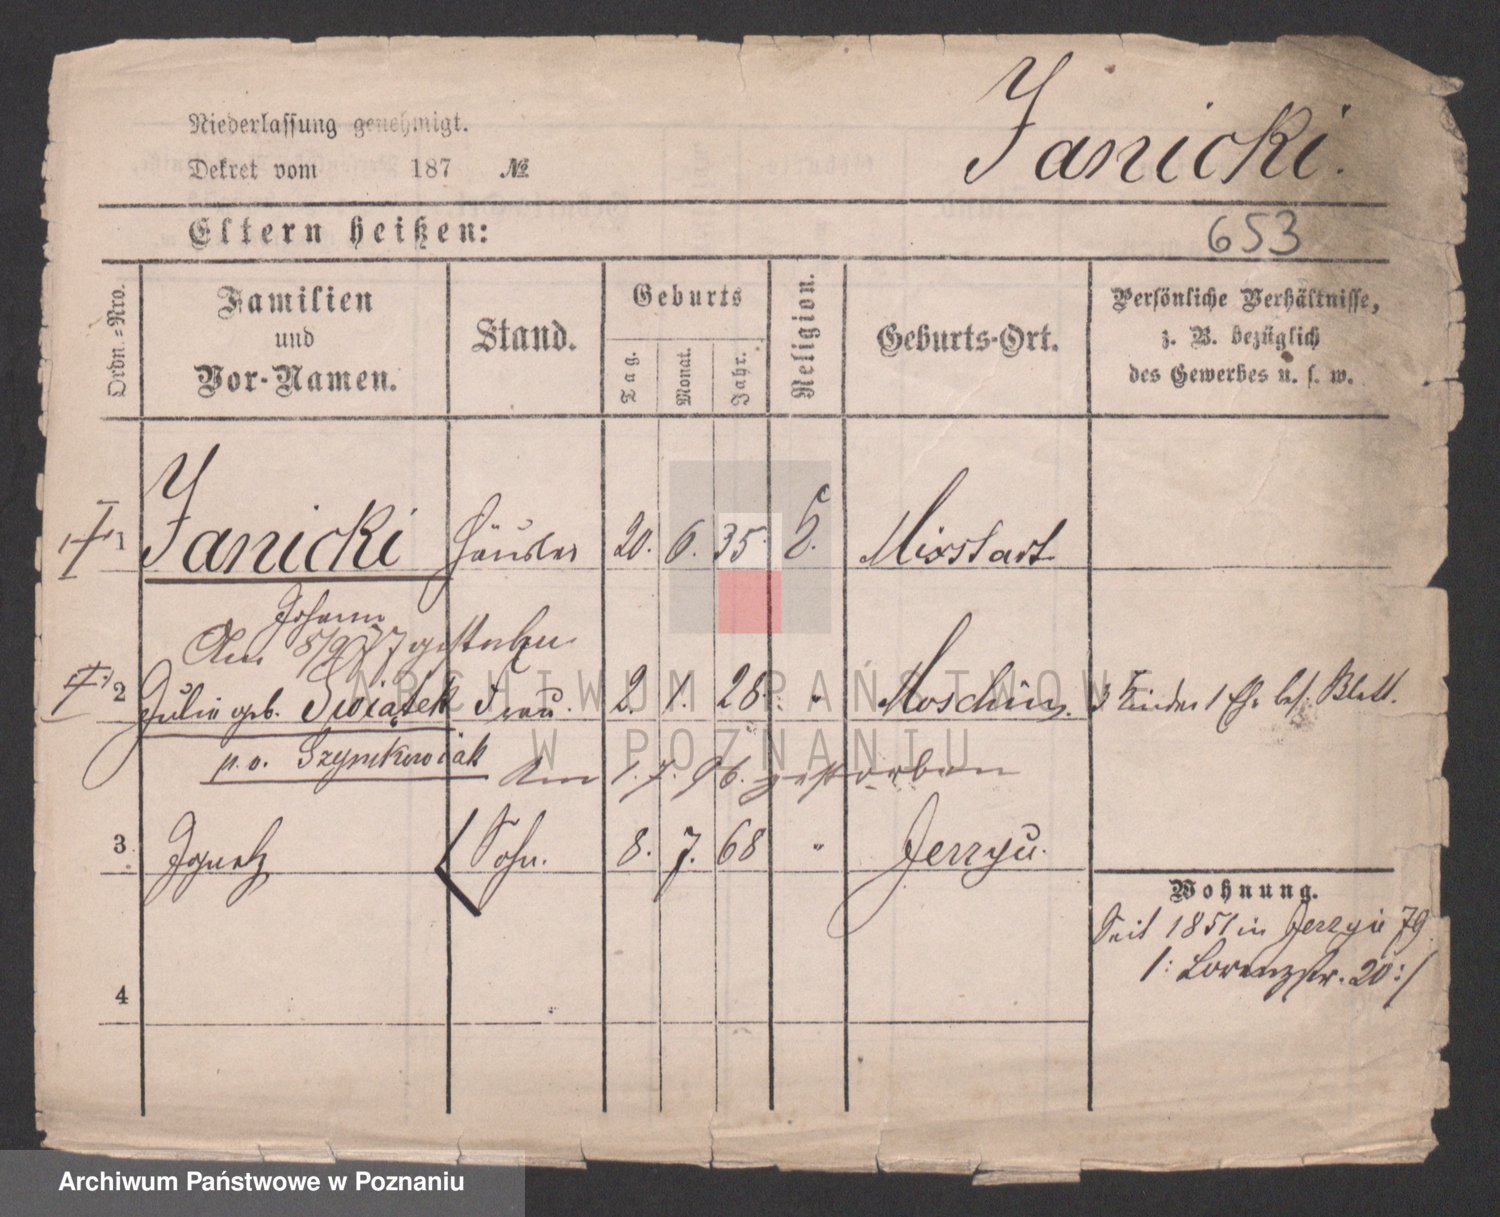 Janicki.
Niederlassung genehmigt.
Dekret vom 187 №
Eltern heißen:
653
Ordn.-Nro.
Familien
und
Vor-Namen.
Stand.
Geburts
Tag.
Monat.
Jahr.
Religion.
Geburts-Ort.
Persönliche Verhältnisse,
z. B. bezüglich
des Gewerbes u. s. w.
1 Janicki Häusler 20. 6. 35. Mixstadt
Johann
Am 5/9 77 gestorben
2 Julie geb. Swiątek Frau. 2. 1. 28. " Moschin. 3 Kinder 1 Blatt.
p. v. Szymkowiak
Am 1. 7. 96. gestorben
3 Ignatz Sohn. 8. 7. 68 " Jerzyce.
Wohnung.
Seit 1851 in Jerzyce 79
/: Lorenzstr. 20 :/
4
ARCHIWUM PAŃSTWOWE
W POZNANIU
Archiwum Państwowe w Poznaniu